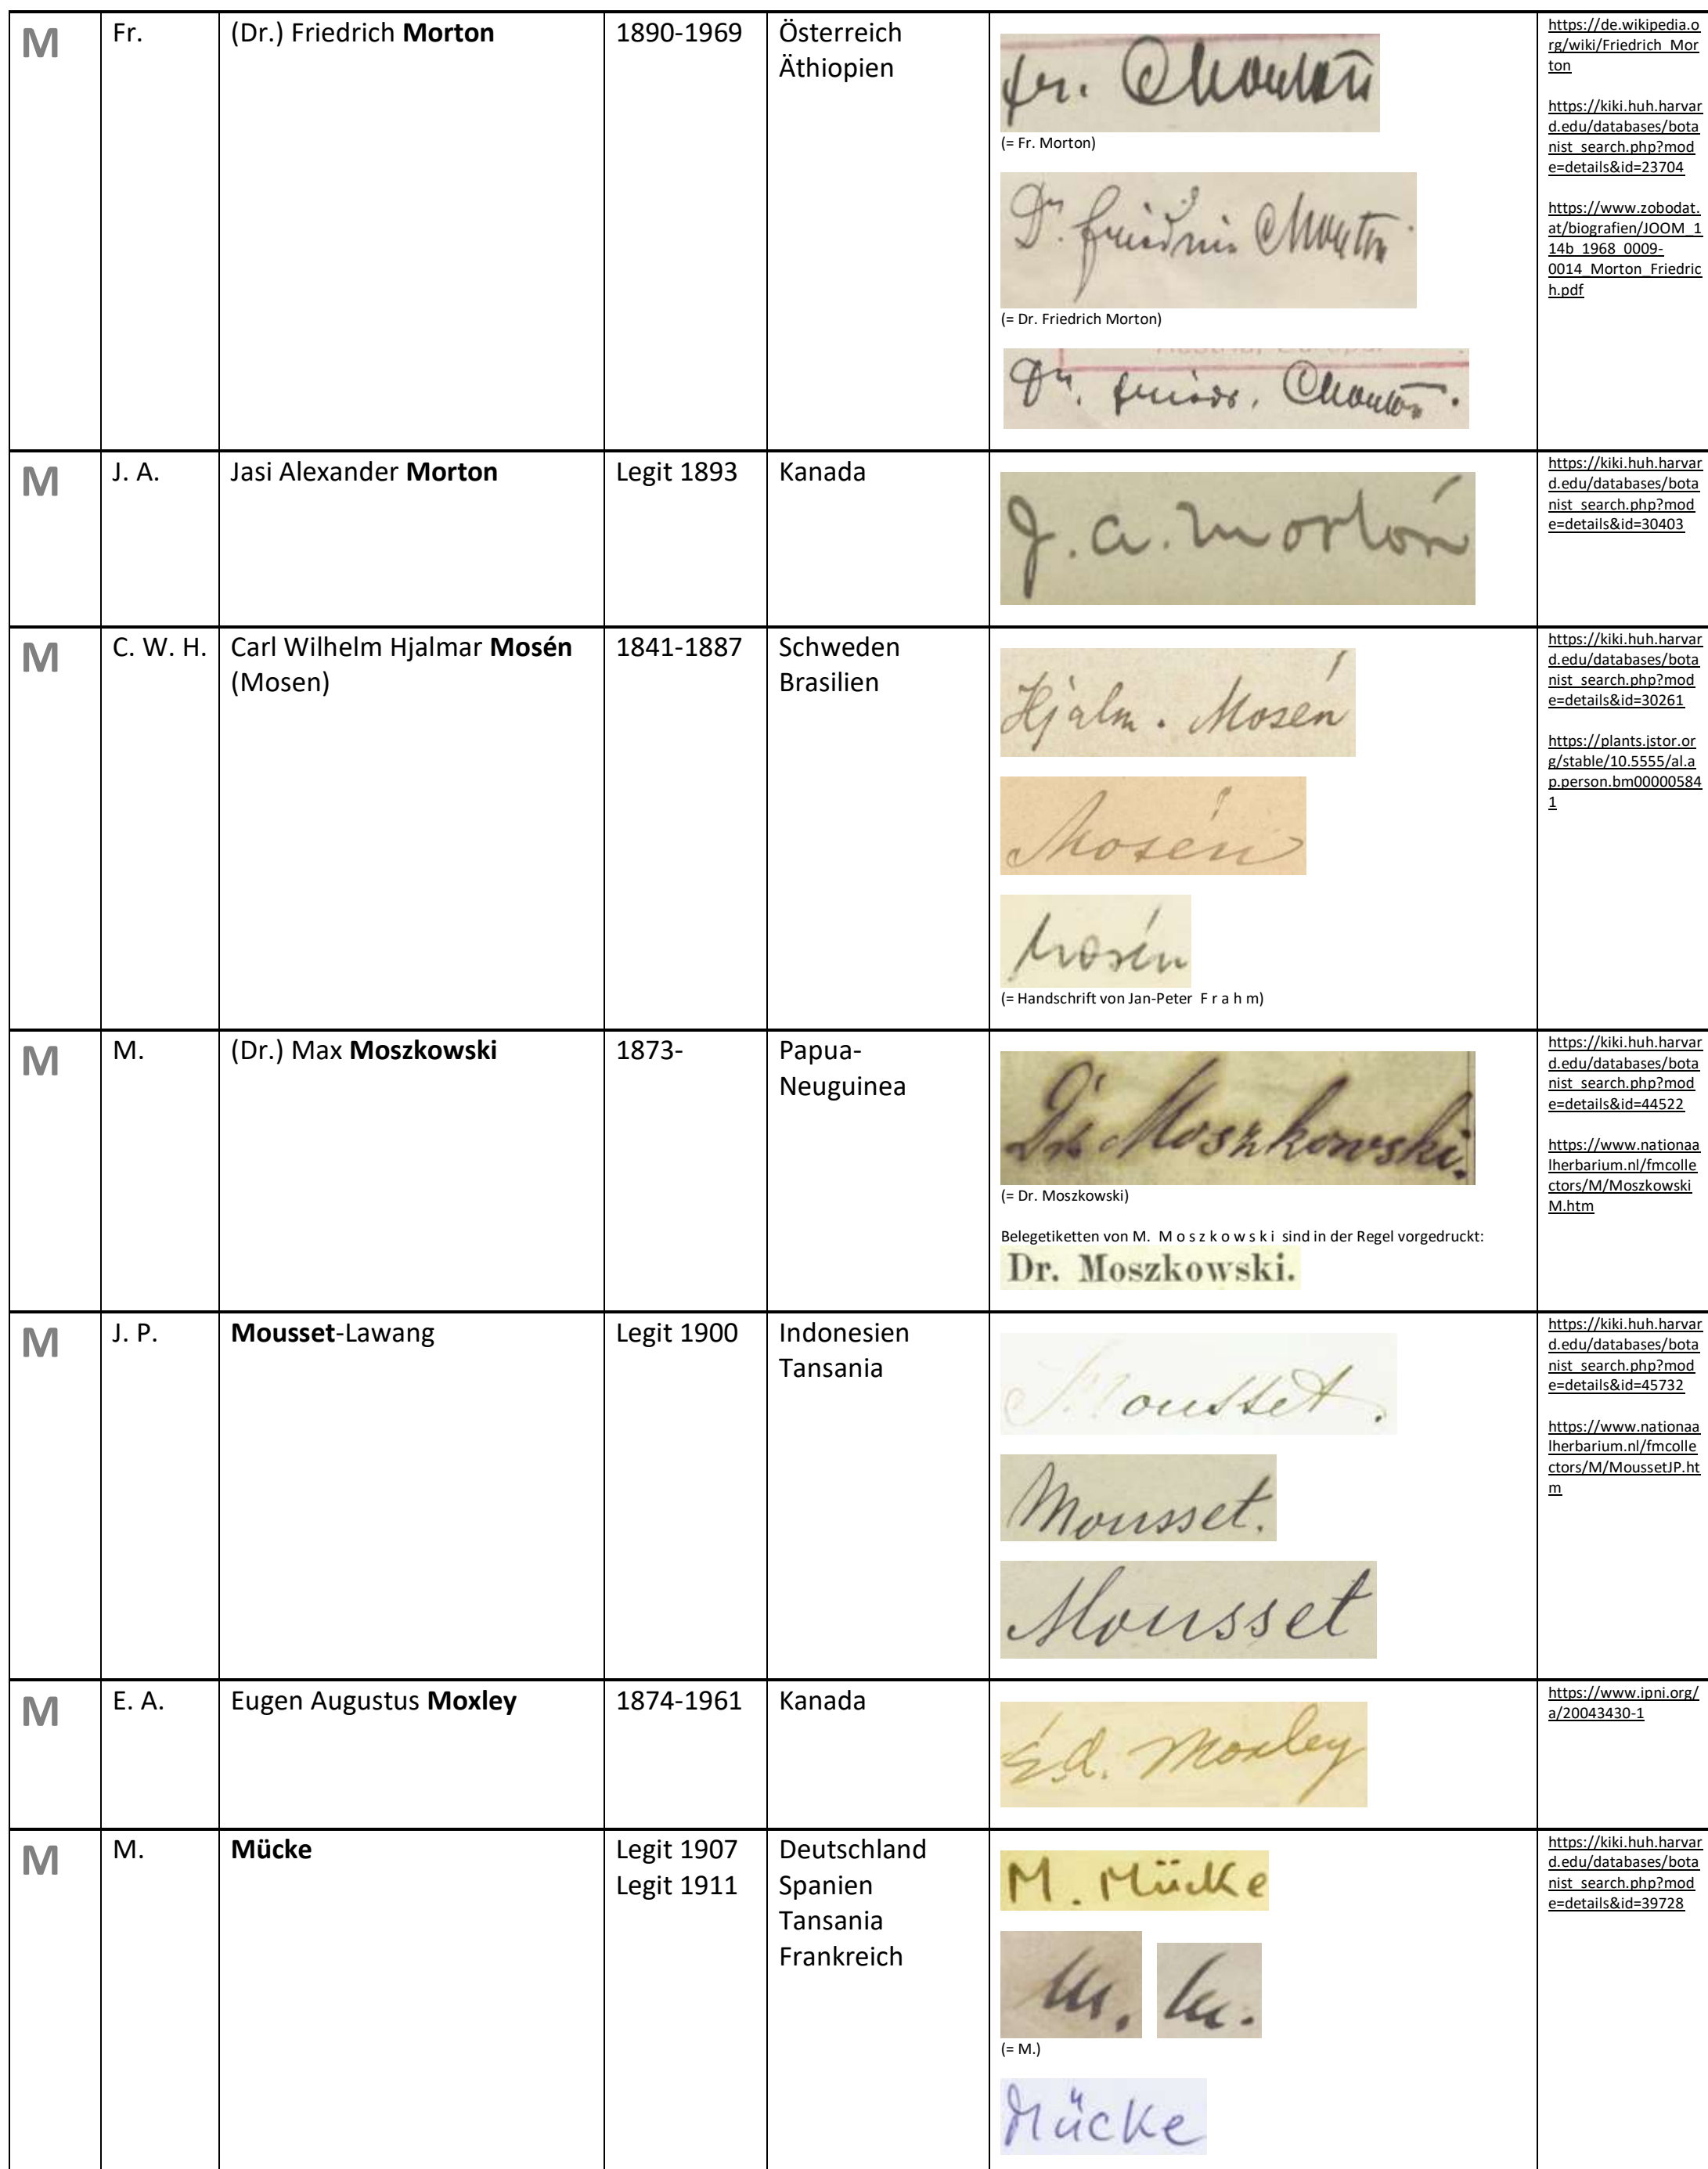 M Fr. (Dr.) Friedrich Morton 1890-1969 Österreich
Äthiopien
fr. Morton
(= Fr. Morton)
Dr. Friedrich Morton
(= Dr. Friedrich Morton)
Dr. Friedr. Morton.
https://de.wikipedia.o
rg/wiki/Friedrich_Mor
ton
https://kiki.huh.harvar
d.edu/databases/bota
nist_search.php?mod
e=details&id=23704
https://www.zobodat.
at/biografien/JOOM_1
14b_1968_0009-
0014_Morton_Friedric
h.pdf
M J. A. Jasi Alexander Morton Legit 1893 Kanada
J. A. Morton
https://kiki.huh.harvar
d.edu/databases/bota
nist_search.php?mod
e=details&id=30403
M C. W. H. Carl Wilhelm Hjalmar Mosén 1841-1887 Schweden
(Mosen) Brasilien
Hjalm. Mosén
Mosén
Mosén
(= Handschrift von Jan-Peter F r a h m)
https://kiki.huh.harvar
d.edu/databases/bota
nist_search.php?mod
e=details&id=30261
https://plants.jstor.or
g/stable/10.5555/al.a
p.person.bm00000584
1
M M. (Dr.) Max Moszkowski 1873- Papua-
Neuguinea
Dr. Moszkowski.
(= Dr. Moszkowski)
Belegetiketten von M. M o s z k o w s k i sind in der Regel vorgedruckt:
Dr. Moszkowski.
https://kiki.huh.harvar
d.edu/databases/bota
nist_search.php?mod
e=details&id=44522
https://www.nationaa
lherbarium.nl/fmcolle
ctors/M/Moszkowski
M.htm
M J. P. Mousset-Lawang Legit 1900 Indonesien
Tansania
Mousset.
Mousset.
Mousset
https://kiki.huh.harvar
d.edu/databases/bota
nist_search.php?mod
e=details&id=45732
https://www.nationaa
lherbarium.nl/fmcolle
ctors/M/MoussetJP.ht
m
M E. A. Eugen Augustus Moxley 1874-1961 Kanada
E.A. Moxley
https://www.ipni.org/
a/20043430-1
M M. Mücke Legit 1907 Deutschland
Legit 1911 Spanien
Tansania
Frankreich
M. Mücke
M. M.
(= M.)
Mücke
https://kiki.huh.harvar
d.edu/databases/bota
nist_search.php?mod
e=details&id=39728